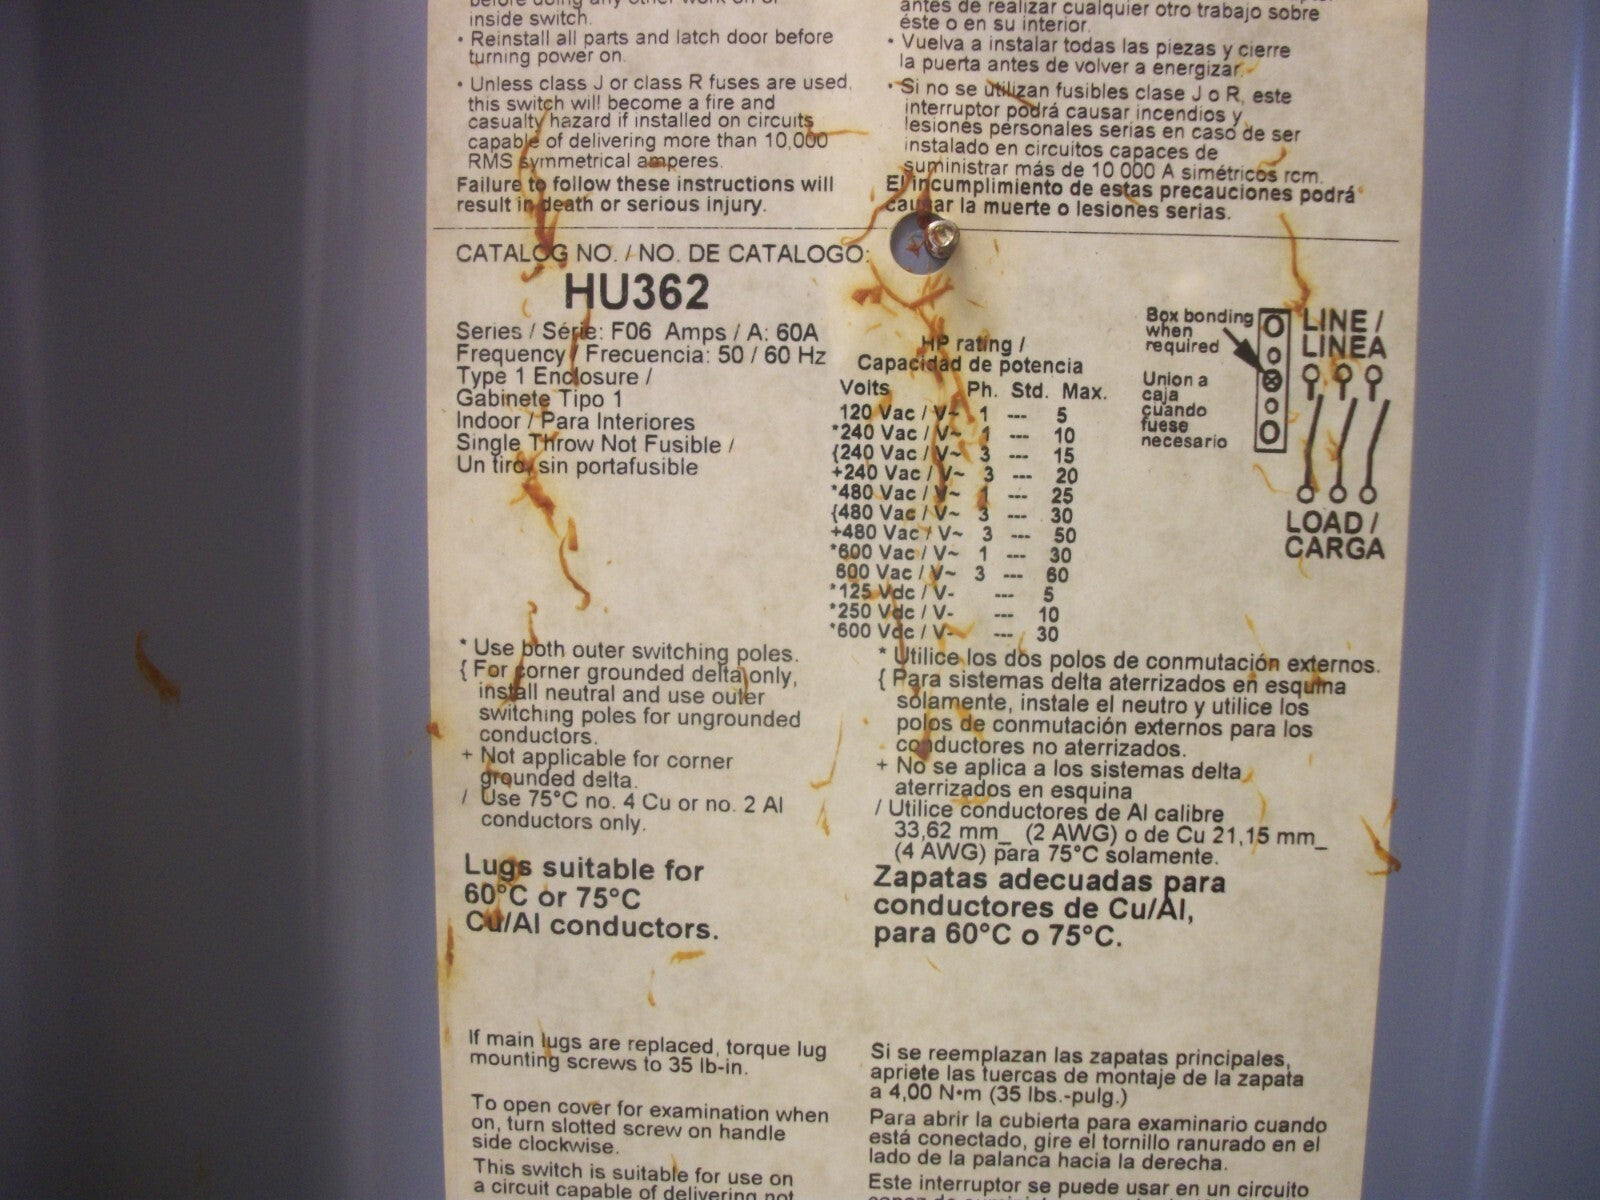 before doing any other work on or
inside switch.
• Reinstall all parts and latch door before
turning power on.
• Unless class J or class R fuses are used,
this switch will become a fire and
casualty hazard if installed on circuits
capable of delivering more than 10,000
RMS symmetrical amperes.
Failure to follow these instructions will
result in death or serious injury.
antes de realizar cualquier otro trabajo sobre
éste o en su interior.
• Vuelva a instalar todas las piezas y cierre
la puerta antes de volver a energizar.
• Si no se utilizan fusibles clase J o R, este
interruptor podrá causar incendios y
lesiones personales serias en caso de ser
instalado en circuitos capaces de
suministrar más de 10 000 A simétricos rcm.
El incumplimiento de estas precauciones podrá
causar la muerte o lesiones serias.
CATALOG NO. / NO. DE CATALOGO:
HU362
Series / Série: F06 Amps / A: 60A
Frequency / Frecuencia: 50 / 60 Hz
Type 1 Enclosure /
Gabinete Tipo 1
Indoor / Para Interiores
Single Throw Not Fusible /
Un tiro, sin portafusible
HP rating /
Capacidad de potencia
Volts Ph. Std. Max.
120 Vac / V~ 1 --- 5
*240 Vac / V~ 1 --- 10
{240 Vac / V~ 3 --- 15
+240 Vac / V~ 3 --- 20
*480 Vac / V~ 1 --- 25
{480 Vac / V~ 3 --- 30
+480 Vac / V~ 3 --- 50
*600 Vac / V~ 1 --- 30
600 Vac / V~ 3 --- 60
*125 Vdc / V- --- 5
*250 Vdc / V- --- 10
*600 Vdc / V- --- 30
Box bonding
when
required
Union a
caja
cuando
fuese
necesario
LINE /
LINEA
LOAD /
CARGA
* Use both outer switching poles.
{ For corner grounded delta only,
install neutral and use outer
switching poles for ungrounded
conductors.
+ Not applicable for corner
grounded delta.
/ Use 75°C no. 4 Cu or no. 2 Al
conductors only.
* Utilice los dos polos de conmutación externos.
{ Para sistemas delta aterrizados en esquina
solamente, instale el neutro y utilice los
polos de conmutación externos para los
conductores no aterrizados.
+ No se aplica a los sistemas delta
aterrizados en esquina
/ Utilice conductores de Al calibre
33,62 mm_ (2 AWG) o de Cu 21,15 mm_
(4 AWG) para 75°C solamente.
Lugs suitable for
60°C or 75°C
Cu/Al conductors.
Zapatas adecuadas para
conductores de Cu/Al,
para 60°C o 75°C.
If main lugs are replaced, torque lug
mounting screws to 35 lb-in.
To open cover for examination when
on, turn slotted screw on handle
side clockwise.
This switch is suitable for use on
a circuit capable of delivering not
Si se reemplazan las zapatas principales,
apriete las tuercas de montaje de la zapata
a 4,00 N•m (35 lbs.-pulg.)
Para abrir la cubierta para examinario cuando
está conectado, gire el tornillo ranurado en el
lado de la palanca hacia la derecha.
Este interruptor se puede usar en un circuito